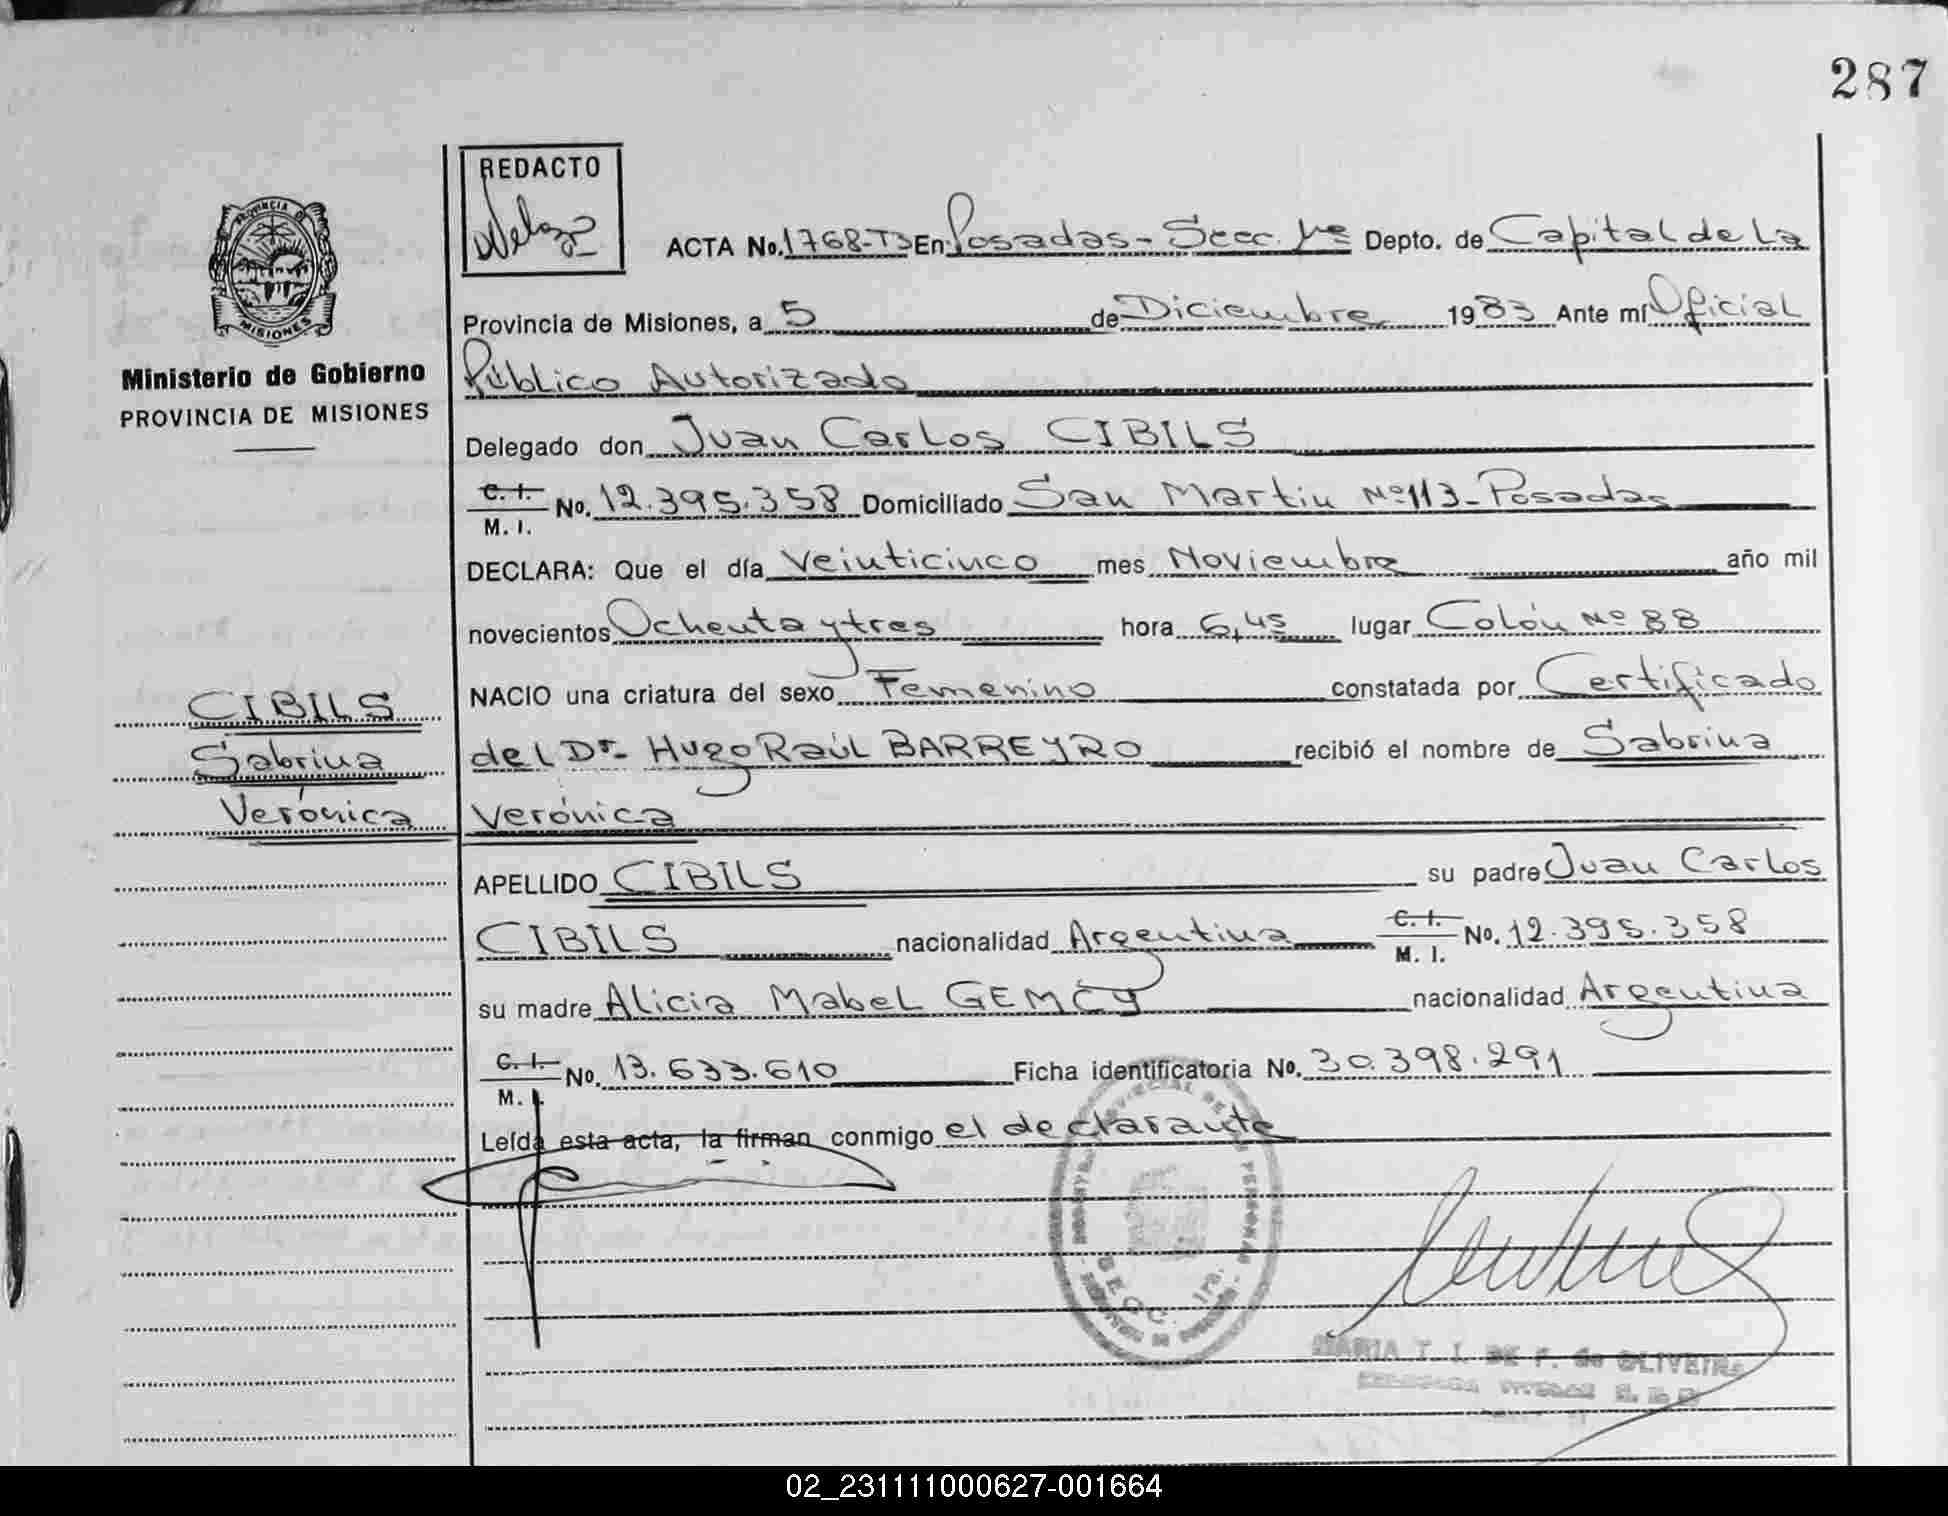 287
REDACTO
ACTA No. 1768-T3 En Posadas - Secc. 1ra Depto. de Capital de La
Provincia de Misiones, a 5 de Diciembre 1983 Ante mí Oficial
Ministerio de Gobierno
PROVINCIA DE MISIONES
Público Autorizado
Delegado don Juan Carlos CIBILS
C. I. M. I. No. 12.395.358 Domiciliado San Martin Nº 113 - Posadas
DECLARA: Que el día Veinticinco mes Noviembre año mil
novecientos Ochenta y tres hora 6,45 lugar Colón Nº 88
NACIO una criatura del sexo Femenino constatada por Certificado
CIBILS
Sabrina
Verónica
del Dr. Hugo Raúl BARREYRO recibió el nombre de Sabrina
Verónica
APELLIDO CIBILS su padre Juan Carlos
CIBILS nacionalidad Argentina C. I. M. I. No. 12.395.358
su madre Alicia Mabel GEMCY nacionalidad Argentina
C. I. M. I. No. 13.633.610 Ficha identificatoria No. 30.398.291
Leída esta acta, la firman conmigo el declarante
SECC. 1ra.
MARIA T. I. DE F. de OLIVEIRA
02_231111000627-001664